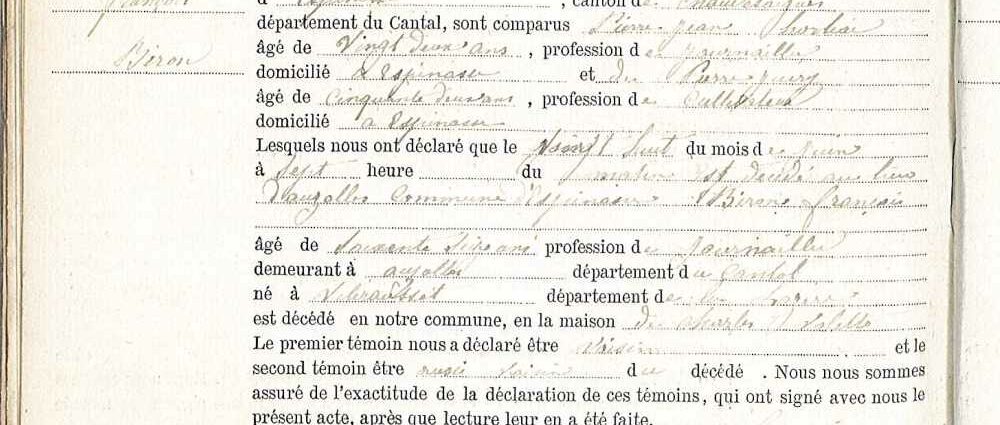 françois
Biron
d' , canton de chaudesaigues
département du Cantal, sont comparus Pierre-Jean
âgé de Vingt deux ans , profession de journaillier
domicilié a Espinasse et de Pierre
âgé de Cinquante deux ans , profession de Cultivateur
domicilié a Espinasse
Lesquels nous ont déclaré que le Vingt huit du mois de juin
à Sept heure du matin est décédé au lieu
Dauzolles Commune d'Espinasse Biron françois
âgé de Soixante ans profession de journaillier
demeurant à auzolles département du Cantal
né à département de
est décédé en notre commune, en la maison de Charles
Le premier témoin nous a déclaré être Voisin et le
second témoin être aussi Voisin du décédé . Nous nous sommes
assuré de l'exactitude de la déclaration de ces témoins, qui ont signé avec nous le
présent acte, après que lecture leur en a été faite.